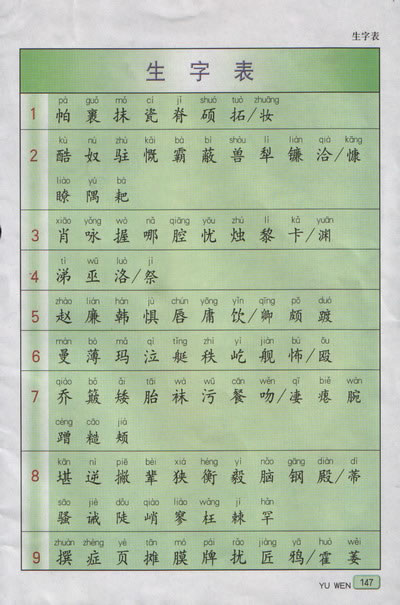 生字表
生 字 表
pà guǒ mǒ cí jǐ shuò tuò zhuāng
1 帕 裹 抹 瓷 脊 硕 拓/妆
kù nú zhù kǎi bà bì shòu lí lián qià kāng
2 酷 奴 驻 慨 霸 蔽 兽 犁 镰 洽/慷
liáo yú bà
瞭 隅 耙
xiāo yǒng wò nǎ qiāng yōu zhú lí kǎ yuān
3 肖 咏 握 哪 腔 忧 烛 黎 卡/渊
tì wū luò jì
4 涕 巫 洛/祭
zhào lián hán jù chún yōng yǐn qīng pō duó
5 赵 廉 韩 惧 唇 庸 饮/卿 颇 踱
màn bó mǎ qì tǐng zhì yì jiàn bù ōu
6 曼 薄 玛 泣 艇 秩 屹 舰 怖/殴
qiáo bǒ ǎi tāi wà wū cān wěn qī biě wàn
7 乔 簸 矮 胎 袜 污 餐 吻/凄 瘪 腕
cèng cāo jiá
蹭 糙 颊
kān nì piē bèi xiá héng yì nǎo gāng diàn dì
8 堪 逆 撇 辈 狭 衡 毅 脑 钢 殿/蒂
sāo jiè dǒu qiào liáo wǎng jí hǎn
骚 诫 陡 峭 寥 枉 棘 罕
zhuàn zhèng yè tān mó pái rǎo jiàng yā huò wěi
9 撰 症 页 摊 膜 牌 扰 匠 鸦/霍 萎
YU WEN 147